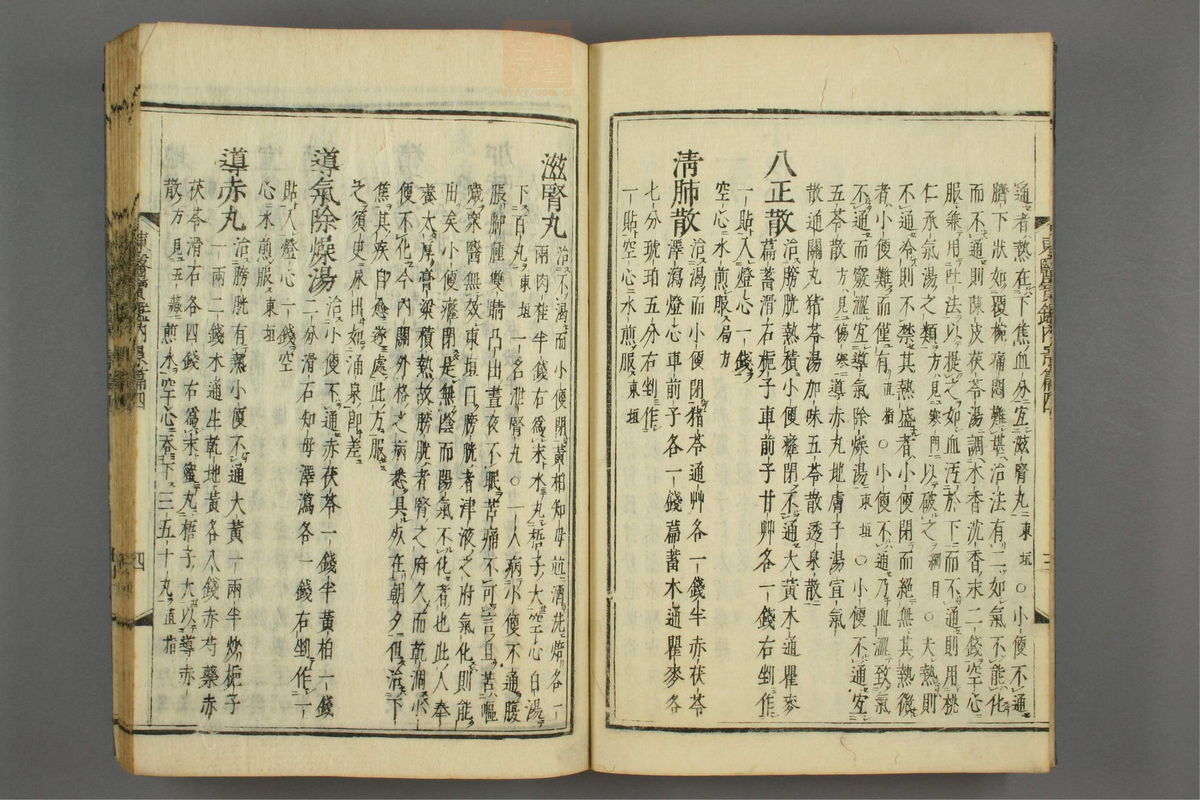 通者熱在下焦血分宜滋腎丸東垣○小便不通
臍下狀如覆椀痛悶難堪治法有二如氣不能化
而不通則陳皮茯苓湯調木香沈香末二錢空心
服乘用吐法以提之如血汚於下而不通則用桃
仁承氣湯之類方見寒門以破之綱目○夫熱則
不通冷則不禁其熱盛者小便閉而絕無其熱微
者小便難而僅有直指○小便不通乃血澀致氣
不通而竅澀宜導氣除燥湯東垣○小便不通宜
五苓散方見傷寒導赤丸地膚子湯宜氣
散通關丸猪苓湯加味五苓散透泉散
八正散治膀胱熱積小便癃閉不通大黃木通瞿麥
萹蓄滑石梔子車前子甘艸各一錢右剉作
一貼入燈心一錢
空心水煎服局方
清肺散治渴而小便閉猪苓通艸各一錢半赤茯苓
澤瀉燈心車前子各一錢萹蓄木通瞿麥各
七分琥珀五分右剉作
一貼空心水煎服東垣
滋腎丸治不渴而小便閉黃柏知母並酒洗焙各一
兩肉桂半錢右爲末水丸梧子大空心白湯
下百丸東垣一名泄腎丸○一人病小便不通腹
脹脚腫雙睛凸出晝夜不眠苦痛不可言且苦嘔
噦衆醫無效東垣曰膀胱者津液之府氣化則能
出矣小便癃閉是無陰而陽氣不化者也此人奉
養太厚膏粱積熱故膀胱者腎之府久而乾涸小
便不化今內關外格之病悉具死在朝夕但治下
焦其疾自愈遂處此方服
之須臾尿出如涌泉卽差
導氣除燥湯治小便不通赤茯苓一錢半黃柏一錢
二分滑石知母澤瀉各一錢右剉作一
貼入燈心一錢空
心水煎服東垣
導赤丸治膀胱有熱小便不通大黃一兩半炒梔子
一兩二錢木通生乾地黃各八錢赤芍藥赤
茯苓滑石各四錢右爲末蜜丸梧子大以導赤
散方見五藏煎水空心呑下三五十丸直指
東醫寶鑑內景篇四
三
東醫寶鑑內景篇四
四